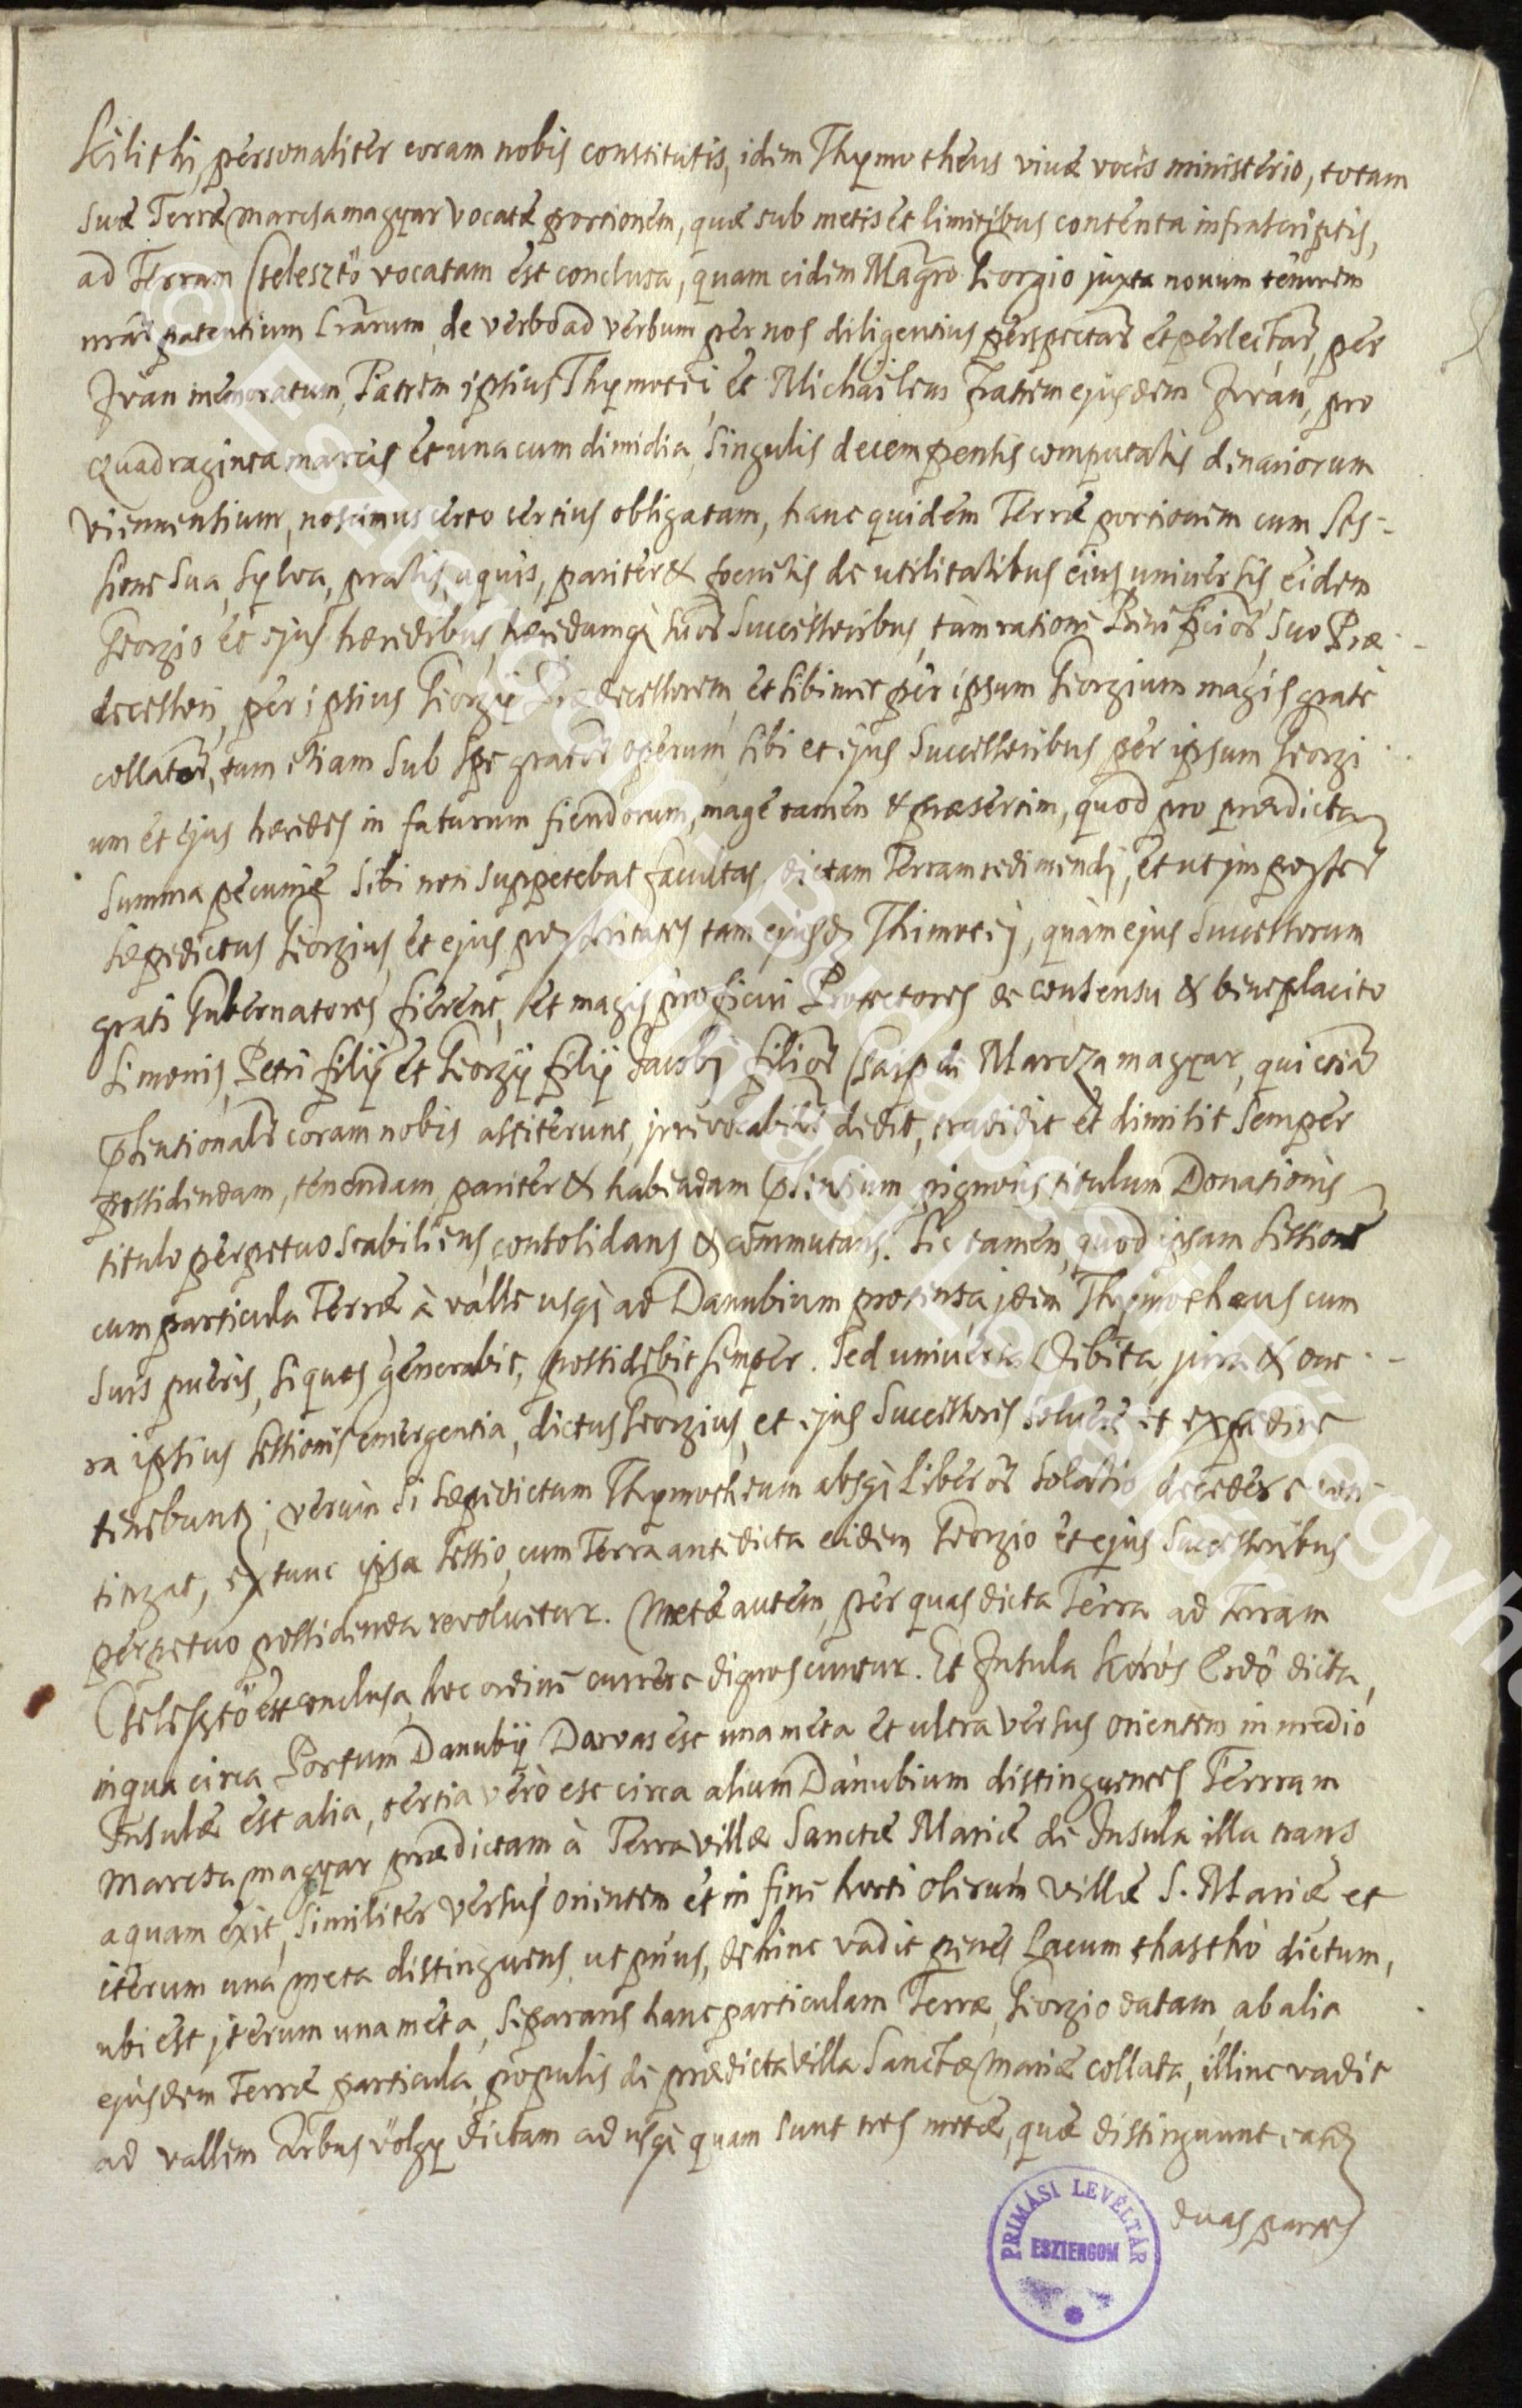 Kilithi, personaliter coram nobis constitutis, idem Thymotheus vivae vocis ministerio, totam
suae Terrae Marcsamagyar vocatae portionem, quae sub metis et limitibus contenta infrascriptis,
ad Terram Stelesztö vocatam est conclusa, quam eidem Magro Georgio juxta novum tenorem
nrar patentium Lrarum, de verbo ad verbum per nos diligentius perspectar et perlectar, per
Ivan memoratum, Patrem ipsius Thymotei et Michailem fratrem ejusdem Ivan, pro
quadraginta marcis et una cum dimidia, singulis decem pensis computatis denariorum
Viennensium, noscimus certo certius obligatam, hanc quidem Terrae portionem cum Ses-
sione sua, sylva, pratis, aquis, pariter & foenetis de utilitatibus ejus universis eidem
Georgio et ejus haeredibus, haeredumq suor Successoribus, tum ratione Beneficior, suo Prae-
decessori, per ipsius Georgij Praedecessorem, et sibimet per ipsum Georgium magis grate
collator, tum etiam sub spe grator operum, sibi et ejus Successoribus per ipsum Georgi-
um et ejus haeredes in futurum fiendorum, mage tamen & praesertim, quod pro praedicta
summa pecuniae sibi non suppetebat facultas, dictam Terram redimendj, et ut jmposter
saepedictus Georgius, et ejus posteritates tam ejusd Thimotej, quàm ejus Successorum
grati Gubernatores fierent, et magis proficui Protectores de consensu & beneplacito
Simonis, Petri filij et Georgij filij Jacobj filior Csaip de Marcza magyar, qui etiā
personalr coram nobis astiterunt, jrrevocabilr dedit, tradidit et dimisit semper
possidendam, tenendam, pariter & habendam praesentium pignoris titulum Donationis
titulo perpetuo stabiliens, consolidans & commutans. Sic tamen, quod ipsam Sessionē
cum particula Terrae à valle usq ad Danubium protensa, jdem Thymotheus cum
suis pueris, si quos generabit, possidebit semper. Sed universa Debita, jura & one-
ra ipsius Sessionis emergentia, dictus Georgius, et ejus Successores solvere et expedire
tenebunt; verum si saepedictum Thymotheum absq Liberor solatio decedere con-
tingat, extunc ipsa Sessio, cum Terra antedicta eidem Georgio et ejus Successoribus
perpetuo possidenda revolvetur. Metae autem, per quas dicta Terra ad Terram
Stelesztö est conclusa, hoc ordine currere dignoscuntur. Et Insula Körös Erdő dicta,
in qua circa Portum Danubij Darvas est una meta et ultra versus orientem in medio
Insulae est alia, tertia verò est circa alium Danubium distinguentes Terrram
Marcsamagyar praedictam à Terra villae Sanctae Mariae de Insula illa trans
aquam exit, similiter versus orientem et in fine horti olerum villae S. Mariae et
iterum una meta distinguens, ut prius, dehinc vadit penes Lacum thastho dictum,
ubi est jterum una meta, separans hanc particulam Terrae, Georgio datam, ab alia
ejusdem Terrae particula, populis de praedicta villa Sanctae Mariae collata, illinc vadit
ad vallem Arbus völgy dictam ad usq quam sunt tres metae, quae distinguunt easd
duas partes
PRIMÁSI LEVÉLTÁR
ESZTERGOM
© Esztergom-Budapesti Főegyh
Prímási Levéltár